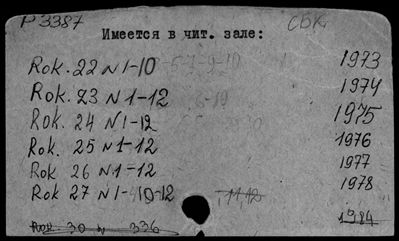 Р 3387 СБК
Имеется в чит. зале:
Rok. 22 N 1-10 1973
Rok. 23 N 1-12 1974
Rok. 24 N 1-12 1975
Rok. 25 N 1-12 1976
Rok 26 N 1-12 1977
Rok 27 N 1-10-12 ,11,12 1978
Rok 30 N 336 1984